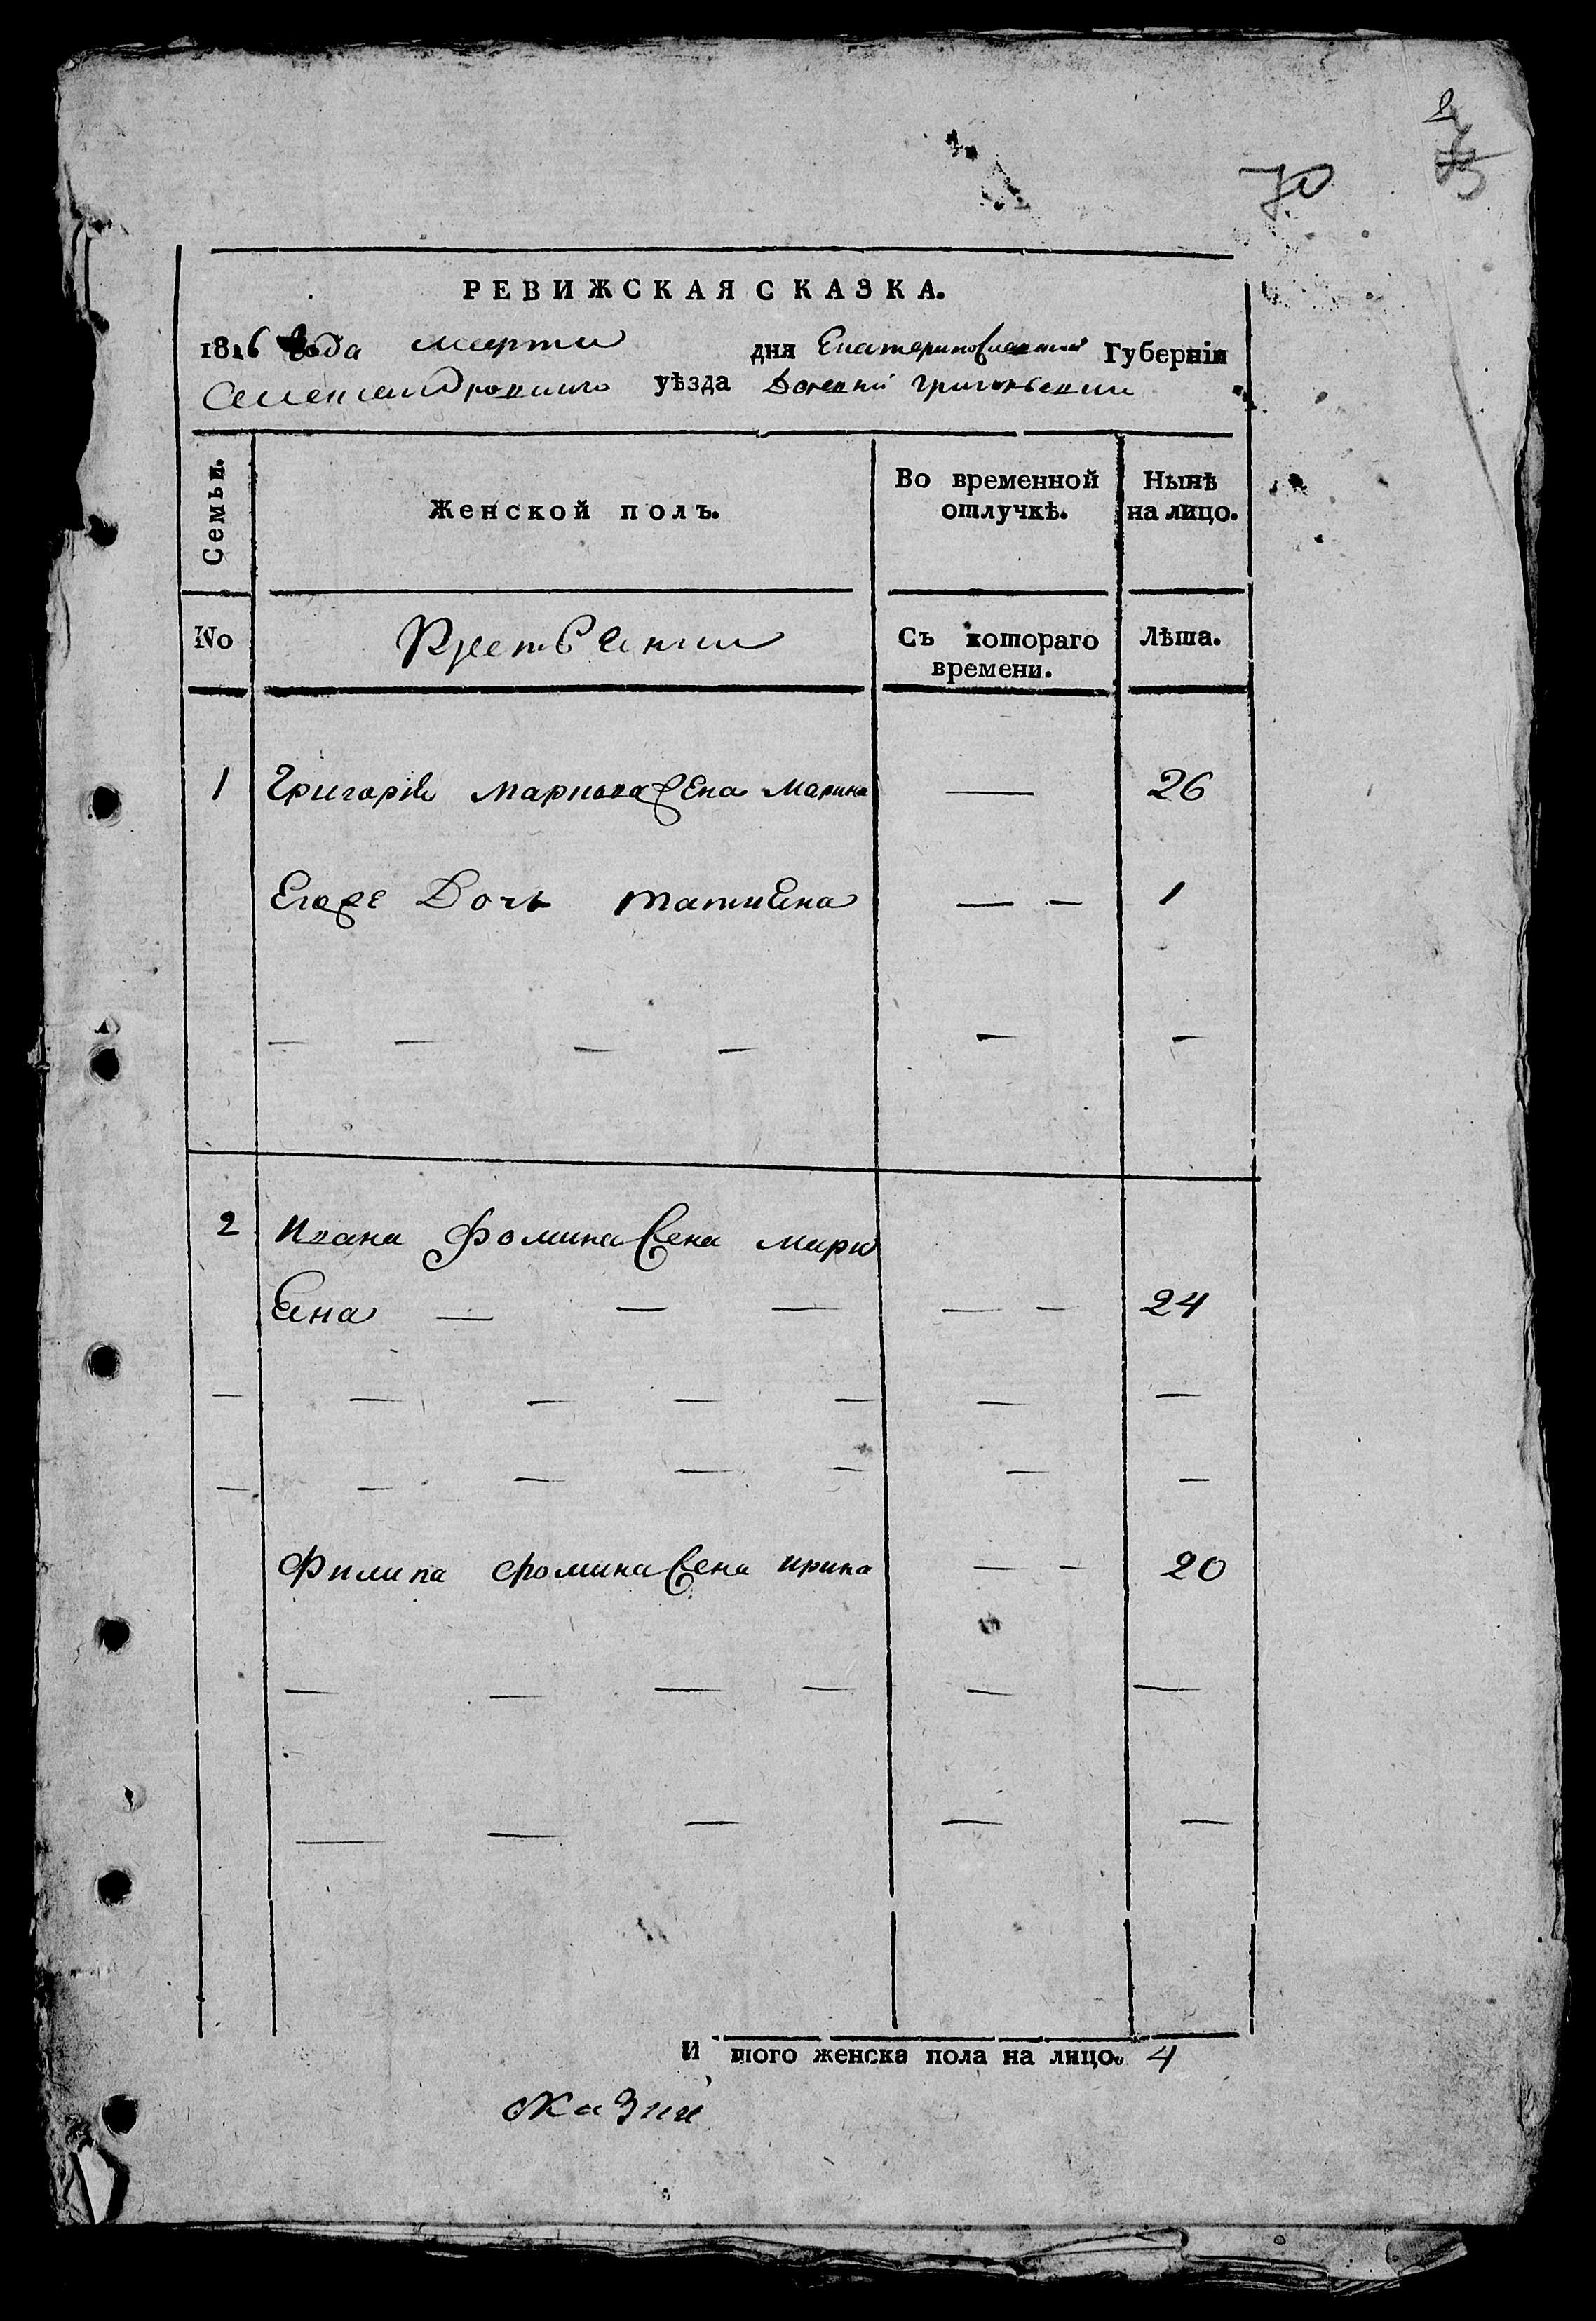 70
РЕВИЖСКАЯ СКАЗКА.
1816 Года марта дня Екатеринославской Губерніи
Александровского уѣзда Деревни
Семьи.
Женской полъ.
Во временной отлучкѣ.
Нынѣ на лицо.
No
Крестьянки
Съ котораго времени.
Лѣта.
1 Григорія Маркова жена Марина — 26
Егоже Дочь татияна — — 1
— — — — — —
2 Ивана Фомина жена мари
яна — — — — — 24
— — — — — — —
— — — — — — —
Филипа Фомина жена ирина — — 20
— — — — — —
— — — — —
И того женска пола на лицо. 4